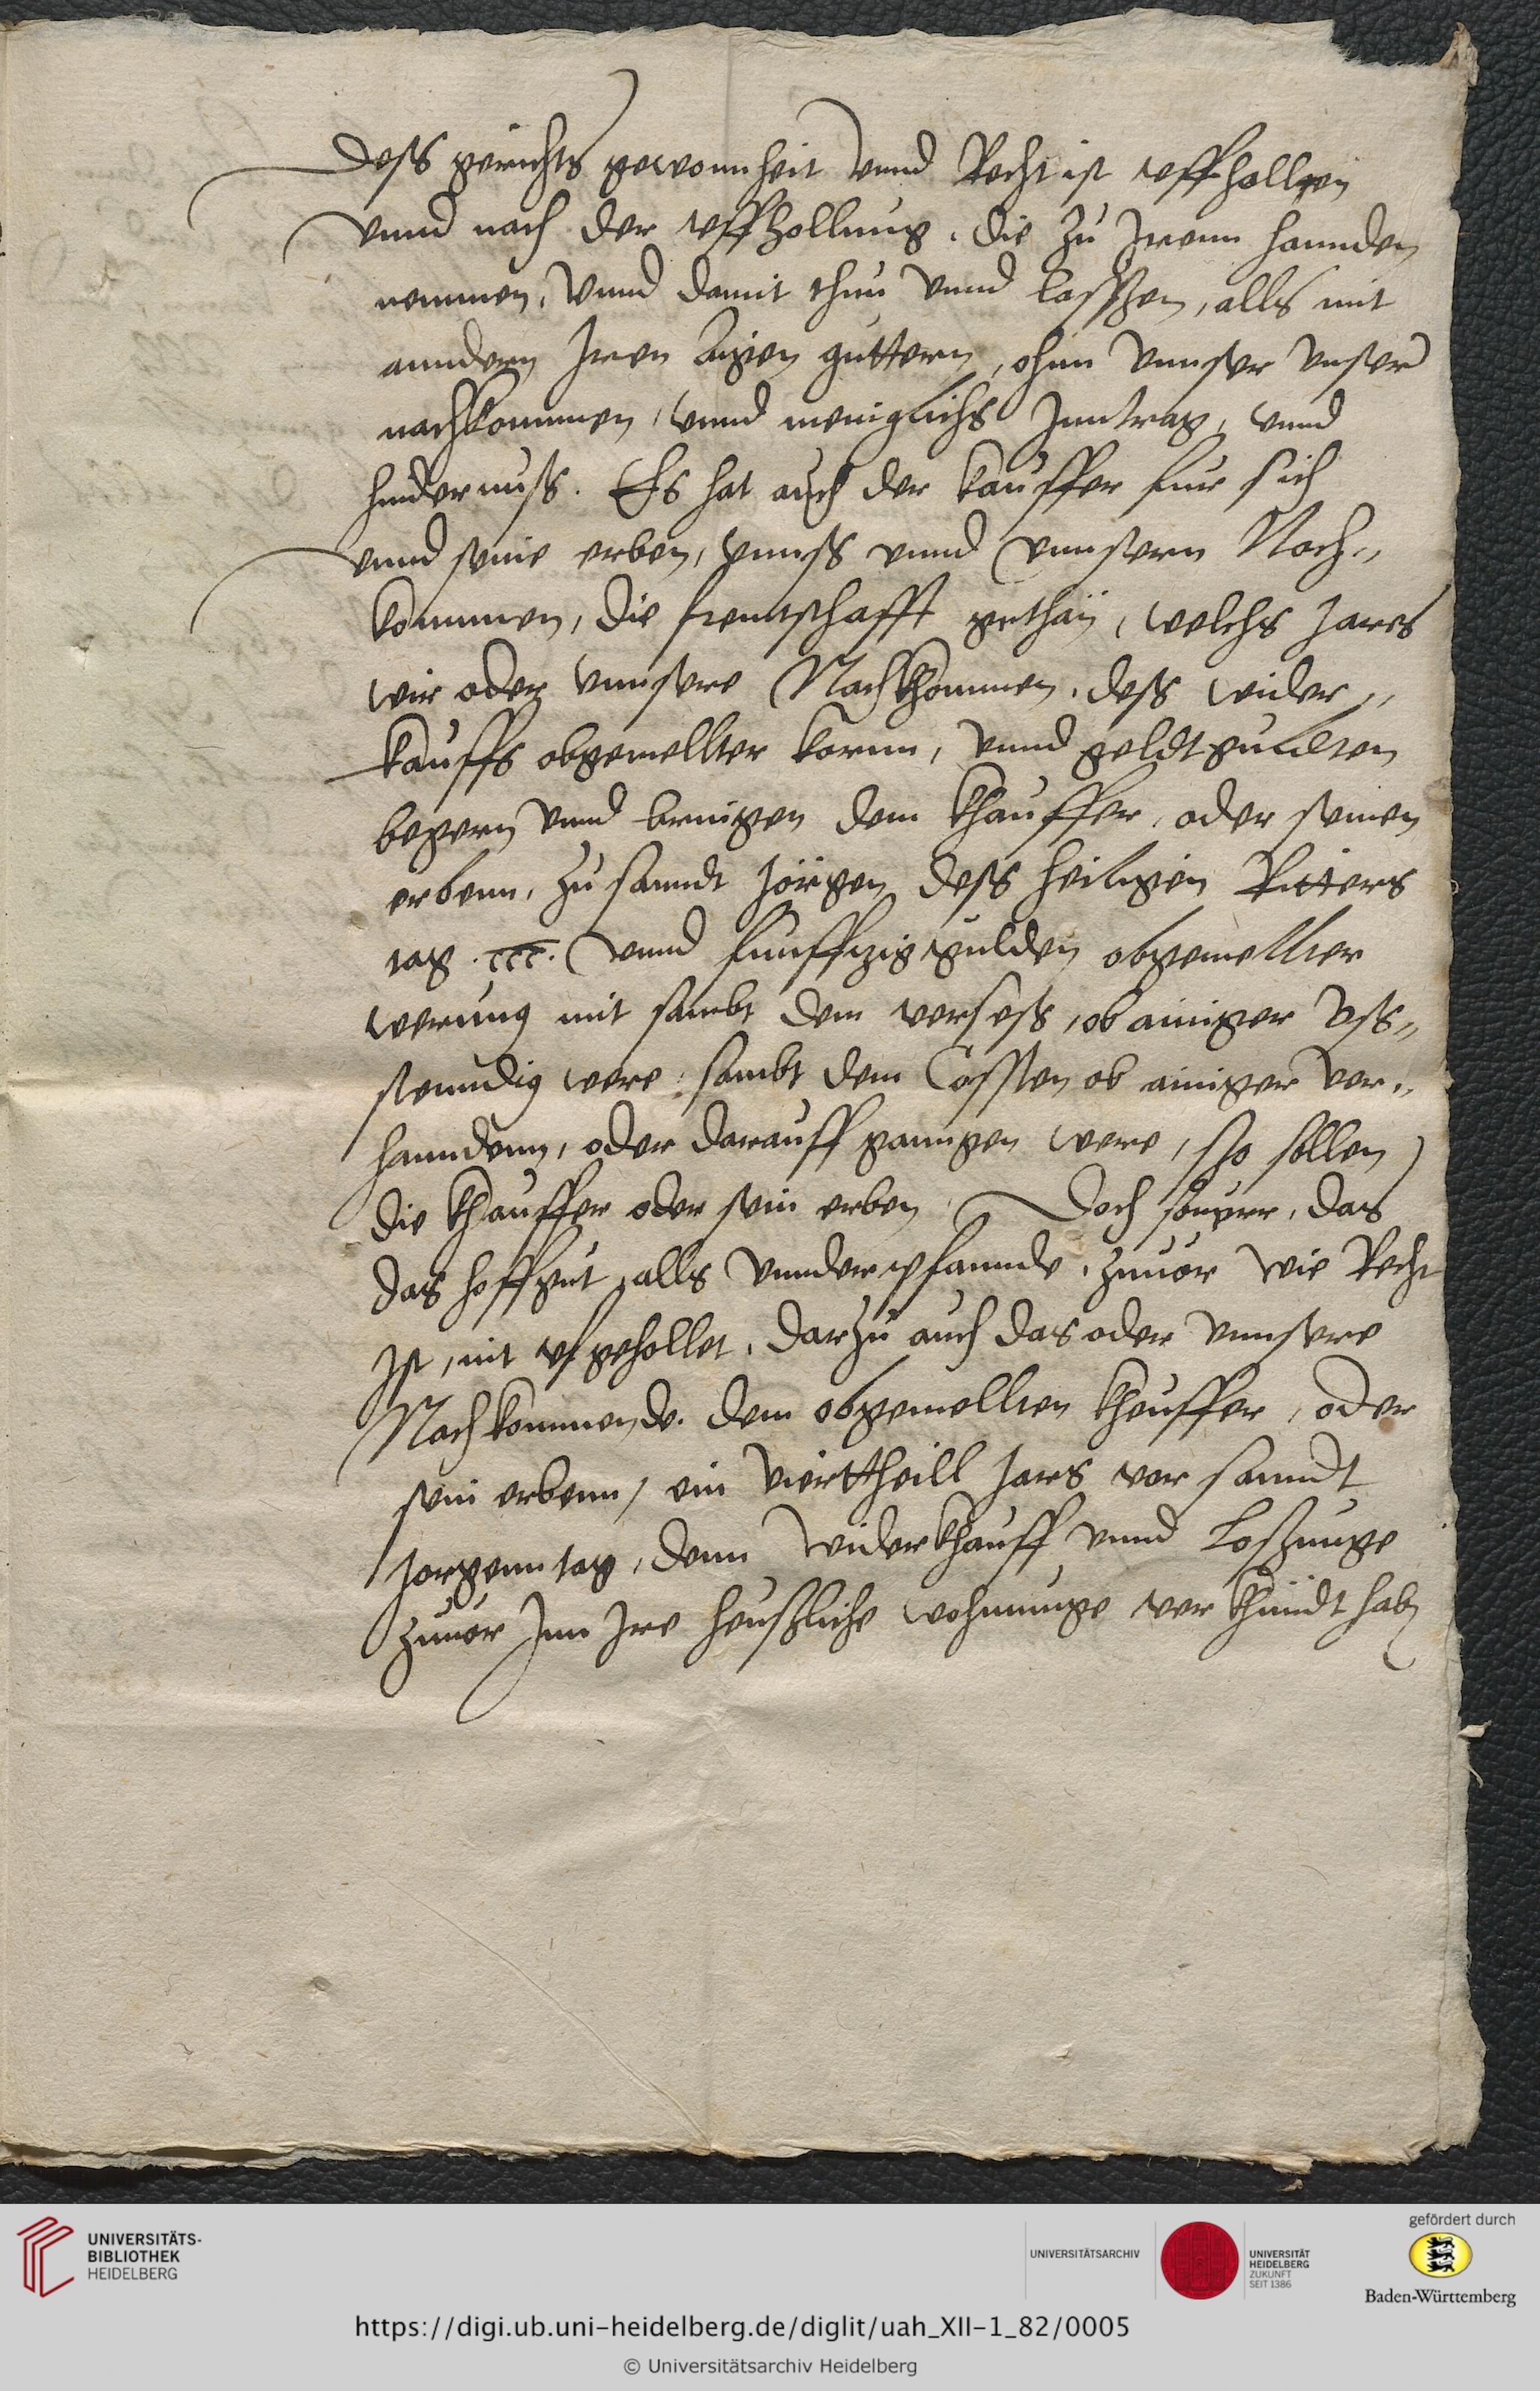 Dess gerichts gewonnheit vnnd Recht ist vffhollen
vnnd nach der vffhollung, die zu Irenn hannden
nemmen, vnnd damit thun vnnd lasszen, alls mit
anndern Iren aigen guttern, ohnn vnnser vnser
nachkommen, vnnd meniglichs Inntrag, vnnd
hindernuss. Es hat auch der kauffer fur sich
vnnd seine erben, vnnss vnnd vnnsern Noch„
kommen, die freuntschafft gethan, welchs Jares
wir oder vnnsere Nachkhommen, dess wider„
kauffs obgemellter kornn, vnnd geldtgulltten
begern vnnd bringen dem khauffer, oder seinen
erbenn, zu sanndt Jörgen dess heiligen Ritters
tag .ccc. vnnd funffzig gulden obgemellter
werung mit sambt dem versess, ob ainiger vss„
stenndig were, sambt dem Cossten ob ainiger ver„
hanndenn, oder darauff ganngen were, sso sollen
die khauffer oder sein erben Doch souerr, das
das hoffgut, alls vnnderpfannde, zuuor wie Recht
Ist, nit vfgehollet, darzu auch das oder vnnsere
Nachkommende. dem obgemellten kheuffer, oder
sein erbenn, ein viertheill Jars vor sanndt
Jorgenntag, denn widerkhauff vnnd Loszunge
zuuor Inn Ire heuszliche wohnunge verkhündt haben
UNIVERSITÄTS-
BIBLIOTHEK
HEIDELBERG
UNIVERSITÄTSARCHIV
UNIVERSITÄT
HEIDELBERG
ZUKUNFT
SEIT 1386
gefördert durch
Baden-Württemberg
https://digi.ub.uni-heidelberg.de/diglit/uah_XII-1_82/0005
© Universitätsarchiv Heidelberg